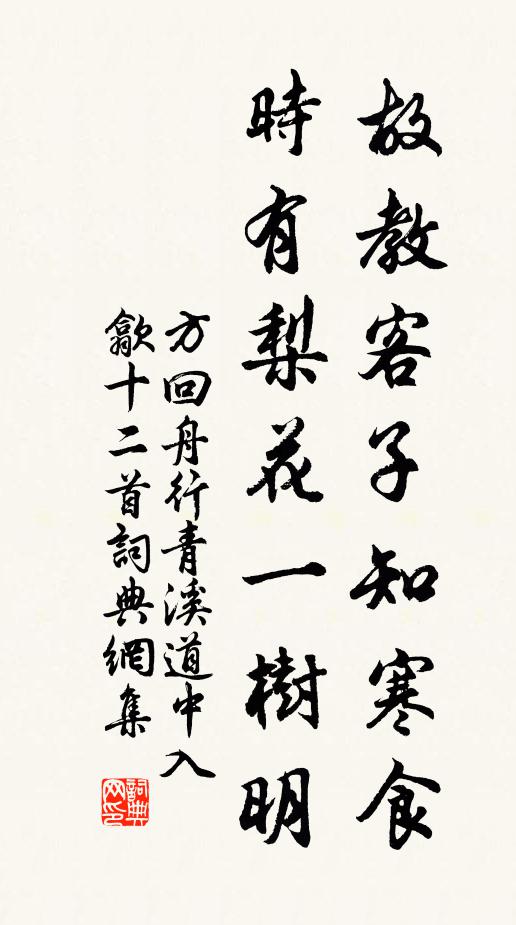 故教客子知寒食
時有梨花一樹明
方回舟行青溪道中入
歙十二首詞典網集
詞典網印